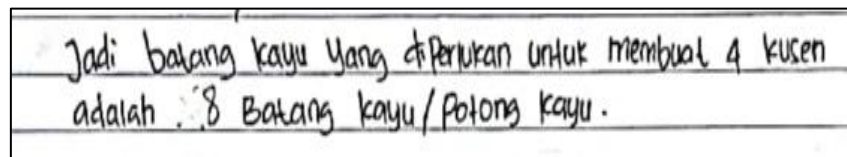 Jadi batang kayu yang diperlukan untuk membuat 4 kusen
adalah : 8 Batang kayu/Potong kayu.